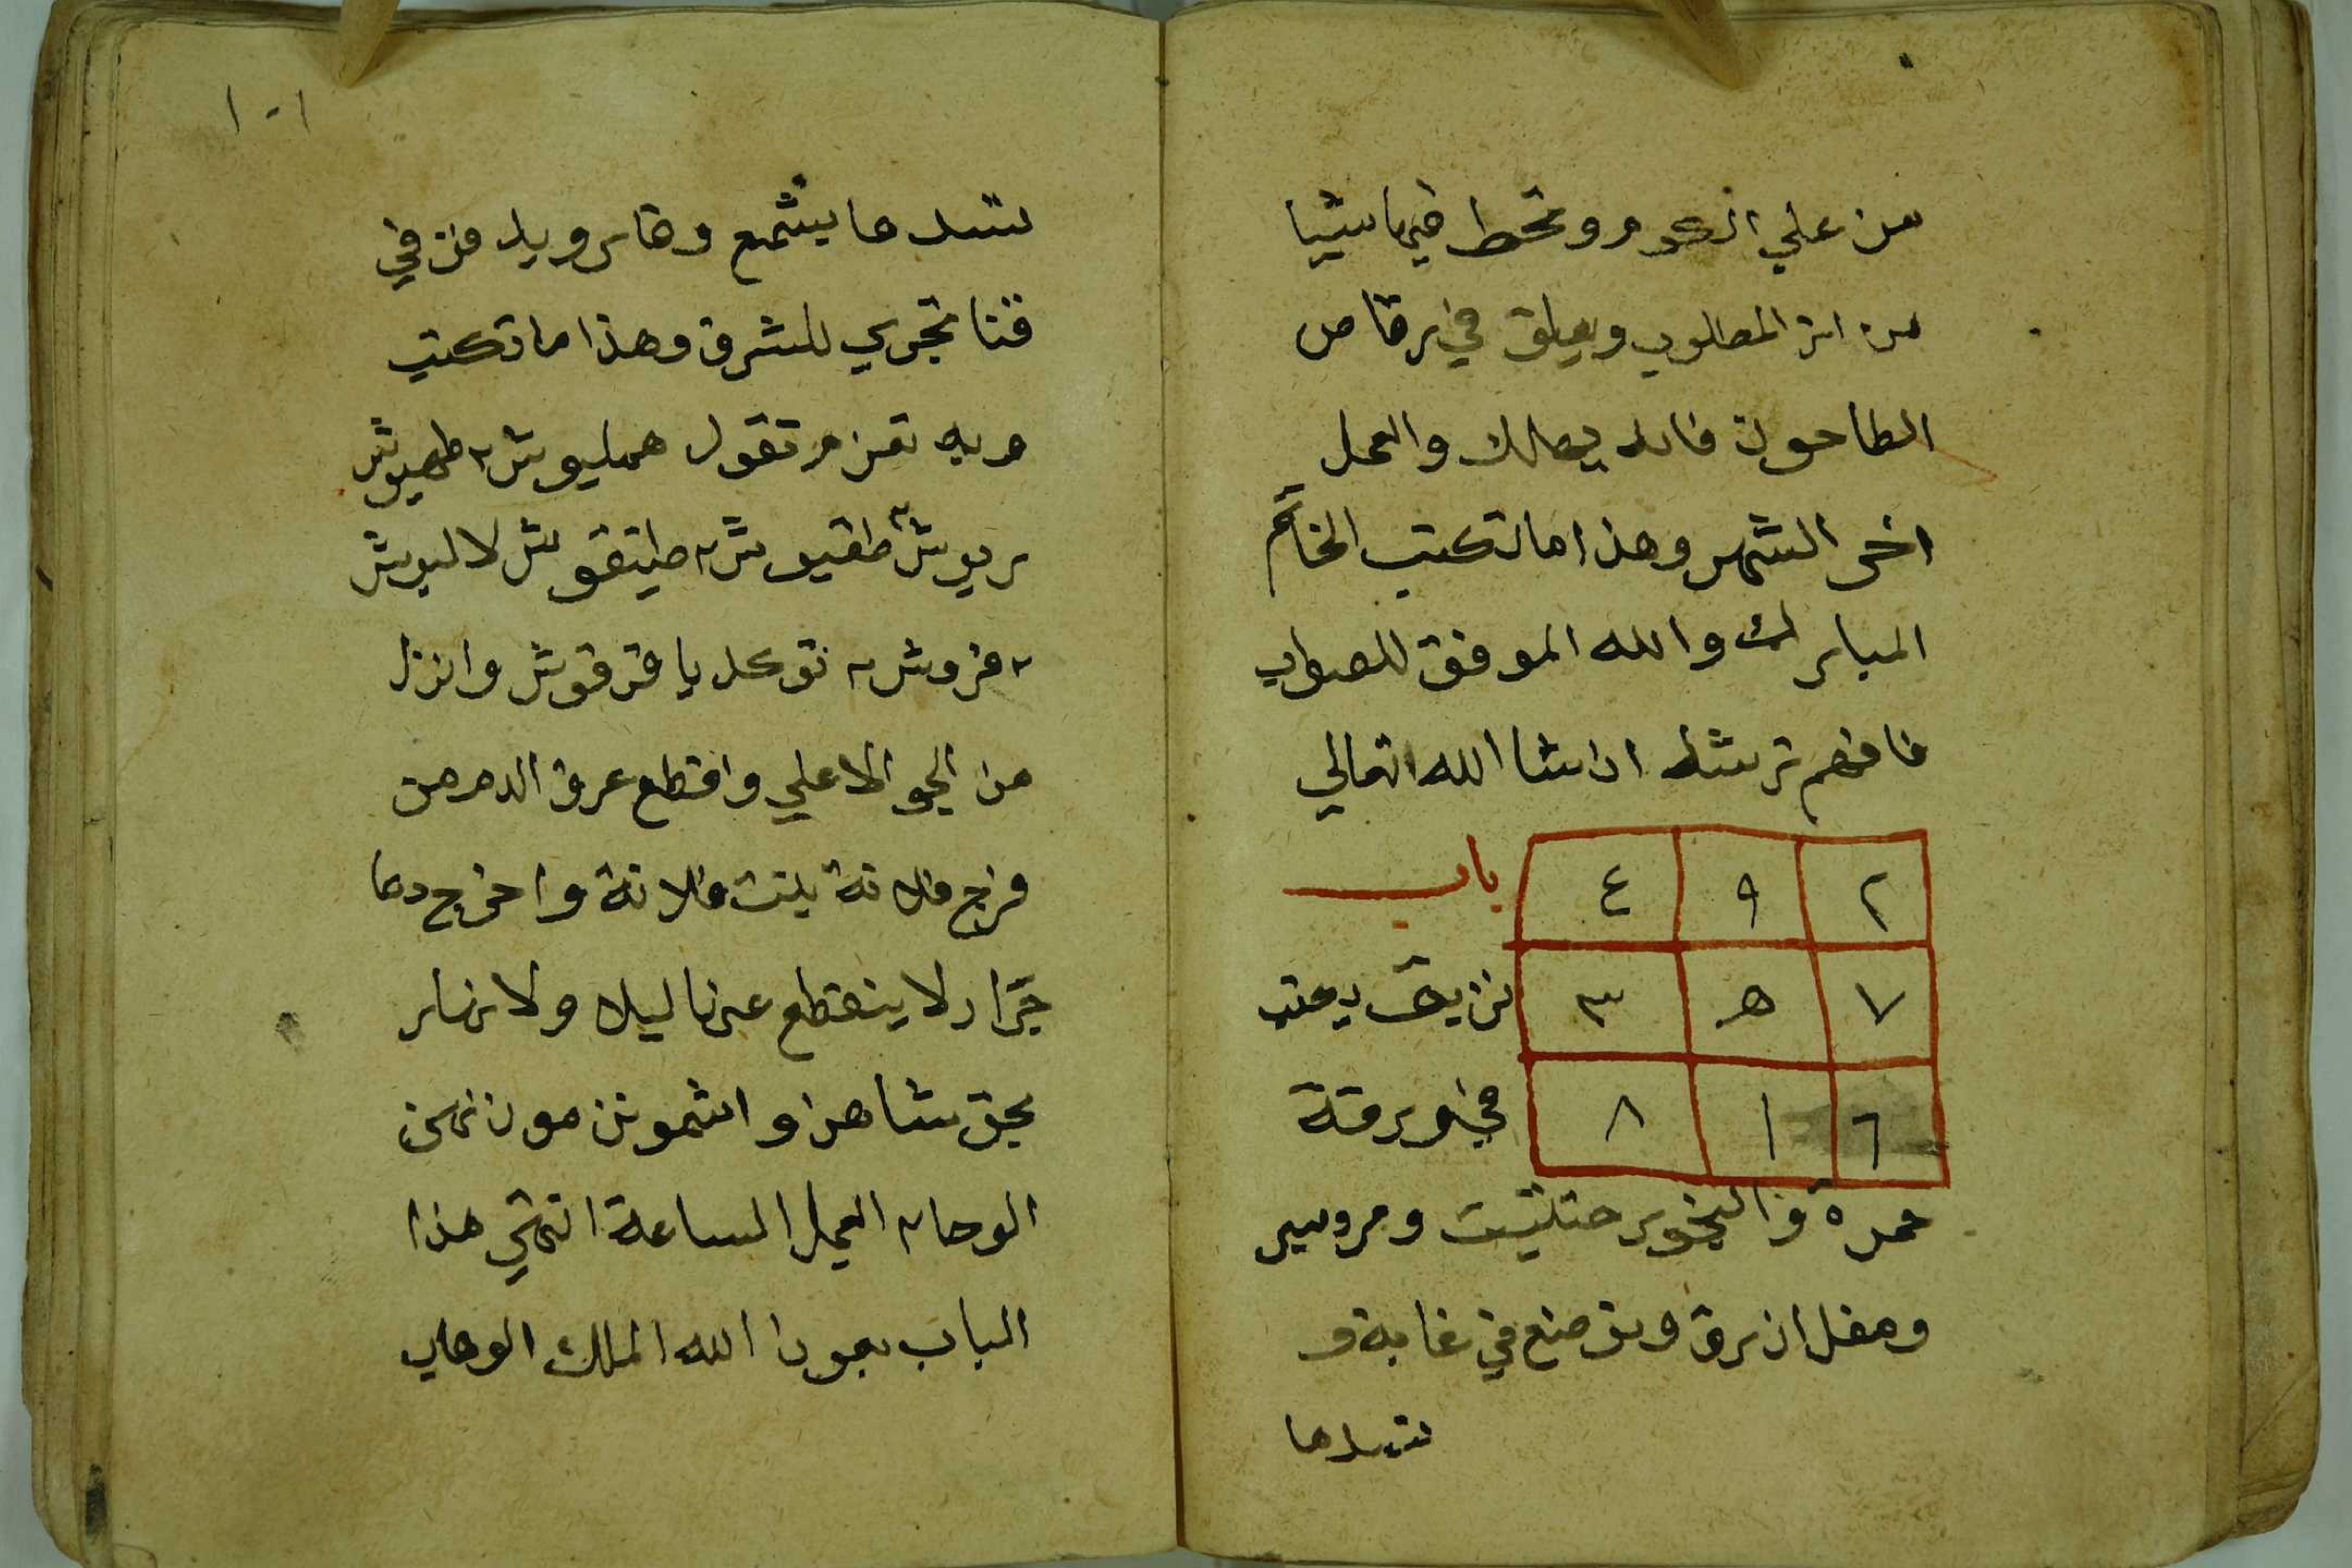 من علي الكوم وتحط فيها شيا
من اثر المطلوب ويعلق في رقاص
الطاحون فانه يهلك والعمل
اخر الشهر وهذا ما تكتب الخاتم
المبارك والله الموفق للصواب
فافهم ترشد ان شا الله تعالي
٢ ٩ ٤
باب
٧ ٥ ٣
نزيف يكتب
٦ ١ ٨
في ورقة
حمرة والبخور حنتيت ومرسير
ومقل ازرق وتوضع في غابة و
تسدها
١٠١
تسدها بشمع وقار ويدفن في
قنا تجري للشرق وهذا ما تكتب
وبه تعزم تقول هيليوش طهيوش
بريوش طقيوش طيقوش لاليوش
قزوش توكل يا قرقوش وانزل
من الجو الاعلي واقطع عرق الدم من
فرج فلانة بنت فلانة واخرج دما
جرار لا ينقطع عنها ليلا ولا نهار
بحق شاهن واشمون
الوحا العجل الساعة انتهي هذا
الباب بعون الله الملك الوهاب